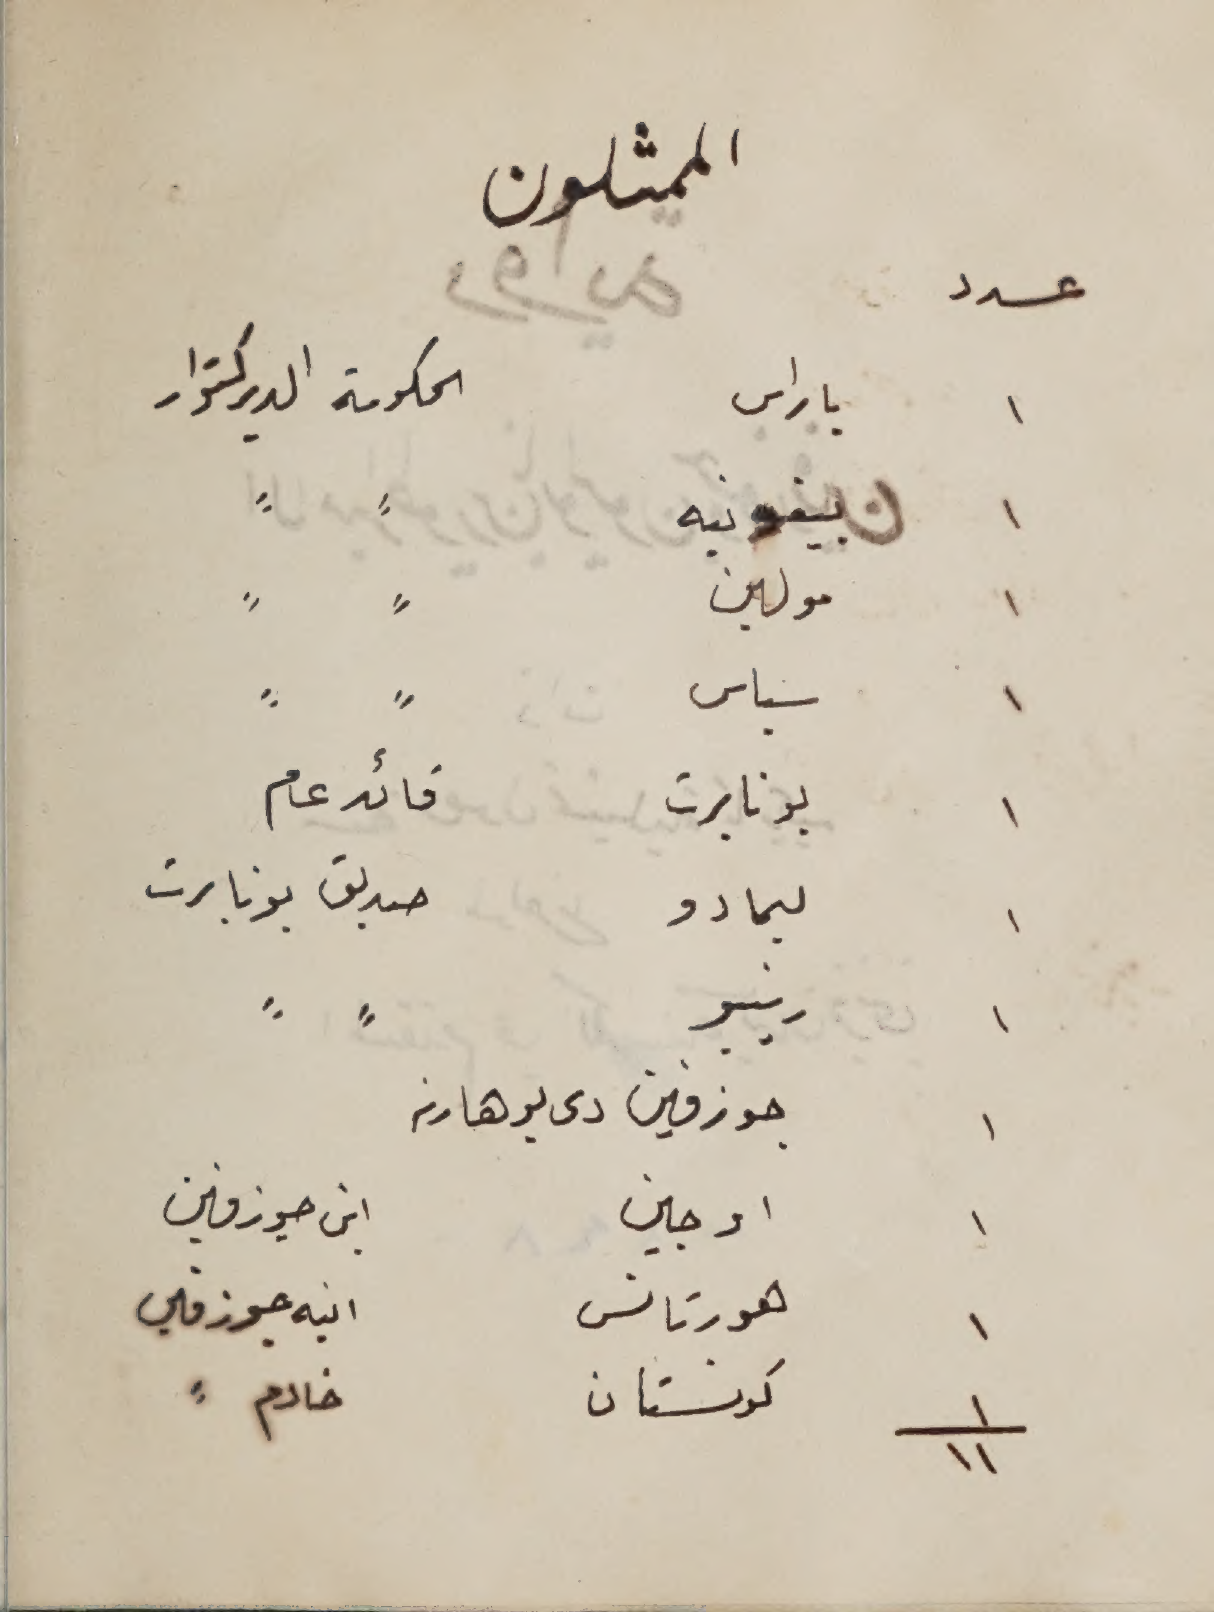 الممثلون
عدد
١ باراس الحكومة الديركتوار
١ " "
١ مولين " "
١ سياس " "
١ بونابرت قائد عام
١ ليمادو صديق بونابرت
١ رينيو " "
١ جوزفين دى بوهارنه
١ اوجين ابن جوزفين
١ هورتانس ابنه جوزفين
١ كونستان خادم "
١١